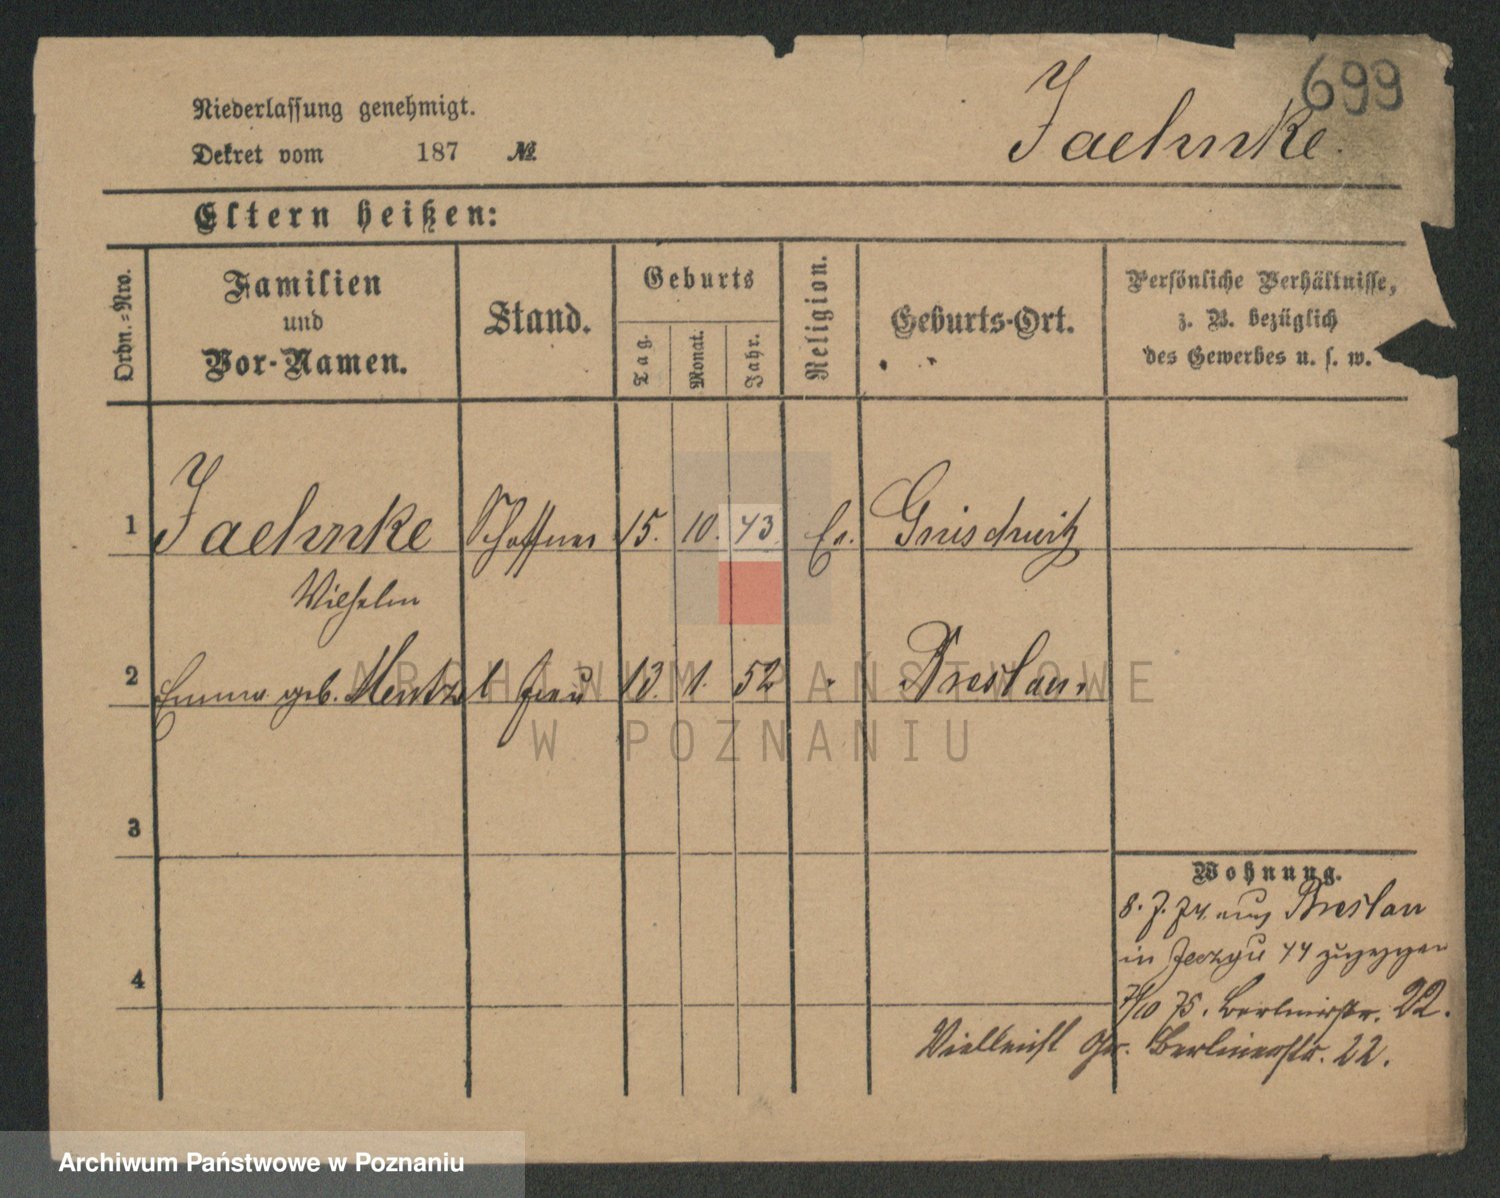 699
Jaehnke.
Niederlassung genehmigt.
Dekret vom 187 №
Eltern heißen:
Ordn.-Nro.
Familien
und
Vor-Namen.
Stand.
Geburts
Tag.
Monat.
Jahr.
Religion.
Geburts-Ort.
Persönliche Verhältnisse,
z. B. bezüglich
des Gewerbes u. s. w.
1 Jaehnke Schaffner 15. 10. 43 Ev.
Wilhelm
2 Emma geb. Mentzel Frau 13. 1. 52 Breslau.
3
4
Wohnung.
8. 7. 74 aus Breslau
in 44
75. Berlinerstr. 22.
Vielleicht Gr. Berlinerstr. 22.
ARCHIWUM PAŃSTWOWE
W POZNANIU
Archiwum Państwowe w Poznaniu